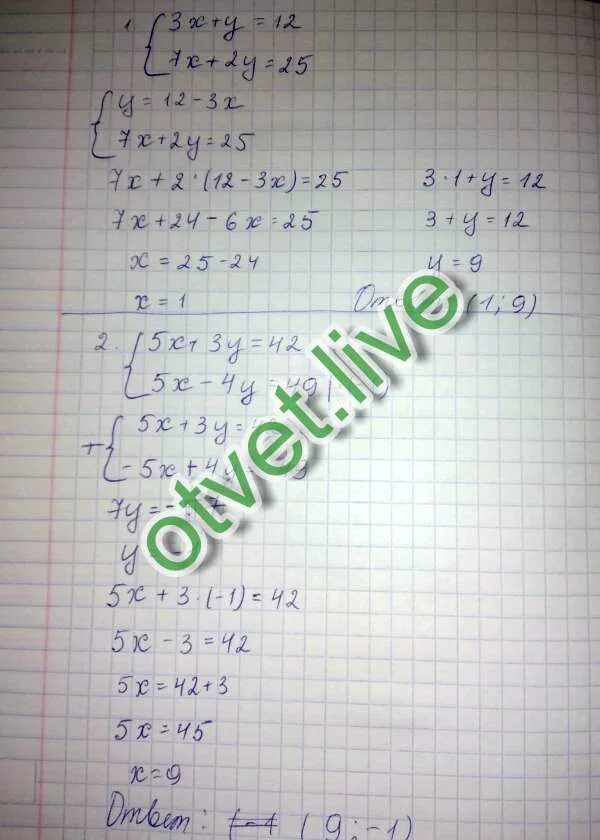 1. { 3x+y=12
7x+2y=25
{ y=12-3x
7x+2y=25
7x+2·(12-3x)=25
7x+24-6x=25
x=25-24
x=1
3·1+y=12
3+y=12
y=9
(1; 9)
2. { 5x+3y=42
5x-4y=49
+ { 5x+3y=
-5x+4y
7y=-7
y
5x+3·(-1)=42
5x-3=42
5x=42+3
5x=45
x=9
Ответ: (9; -1)
otvet.live